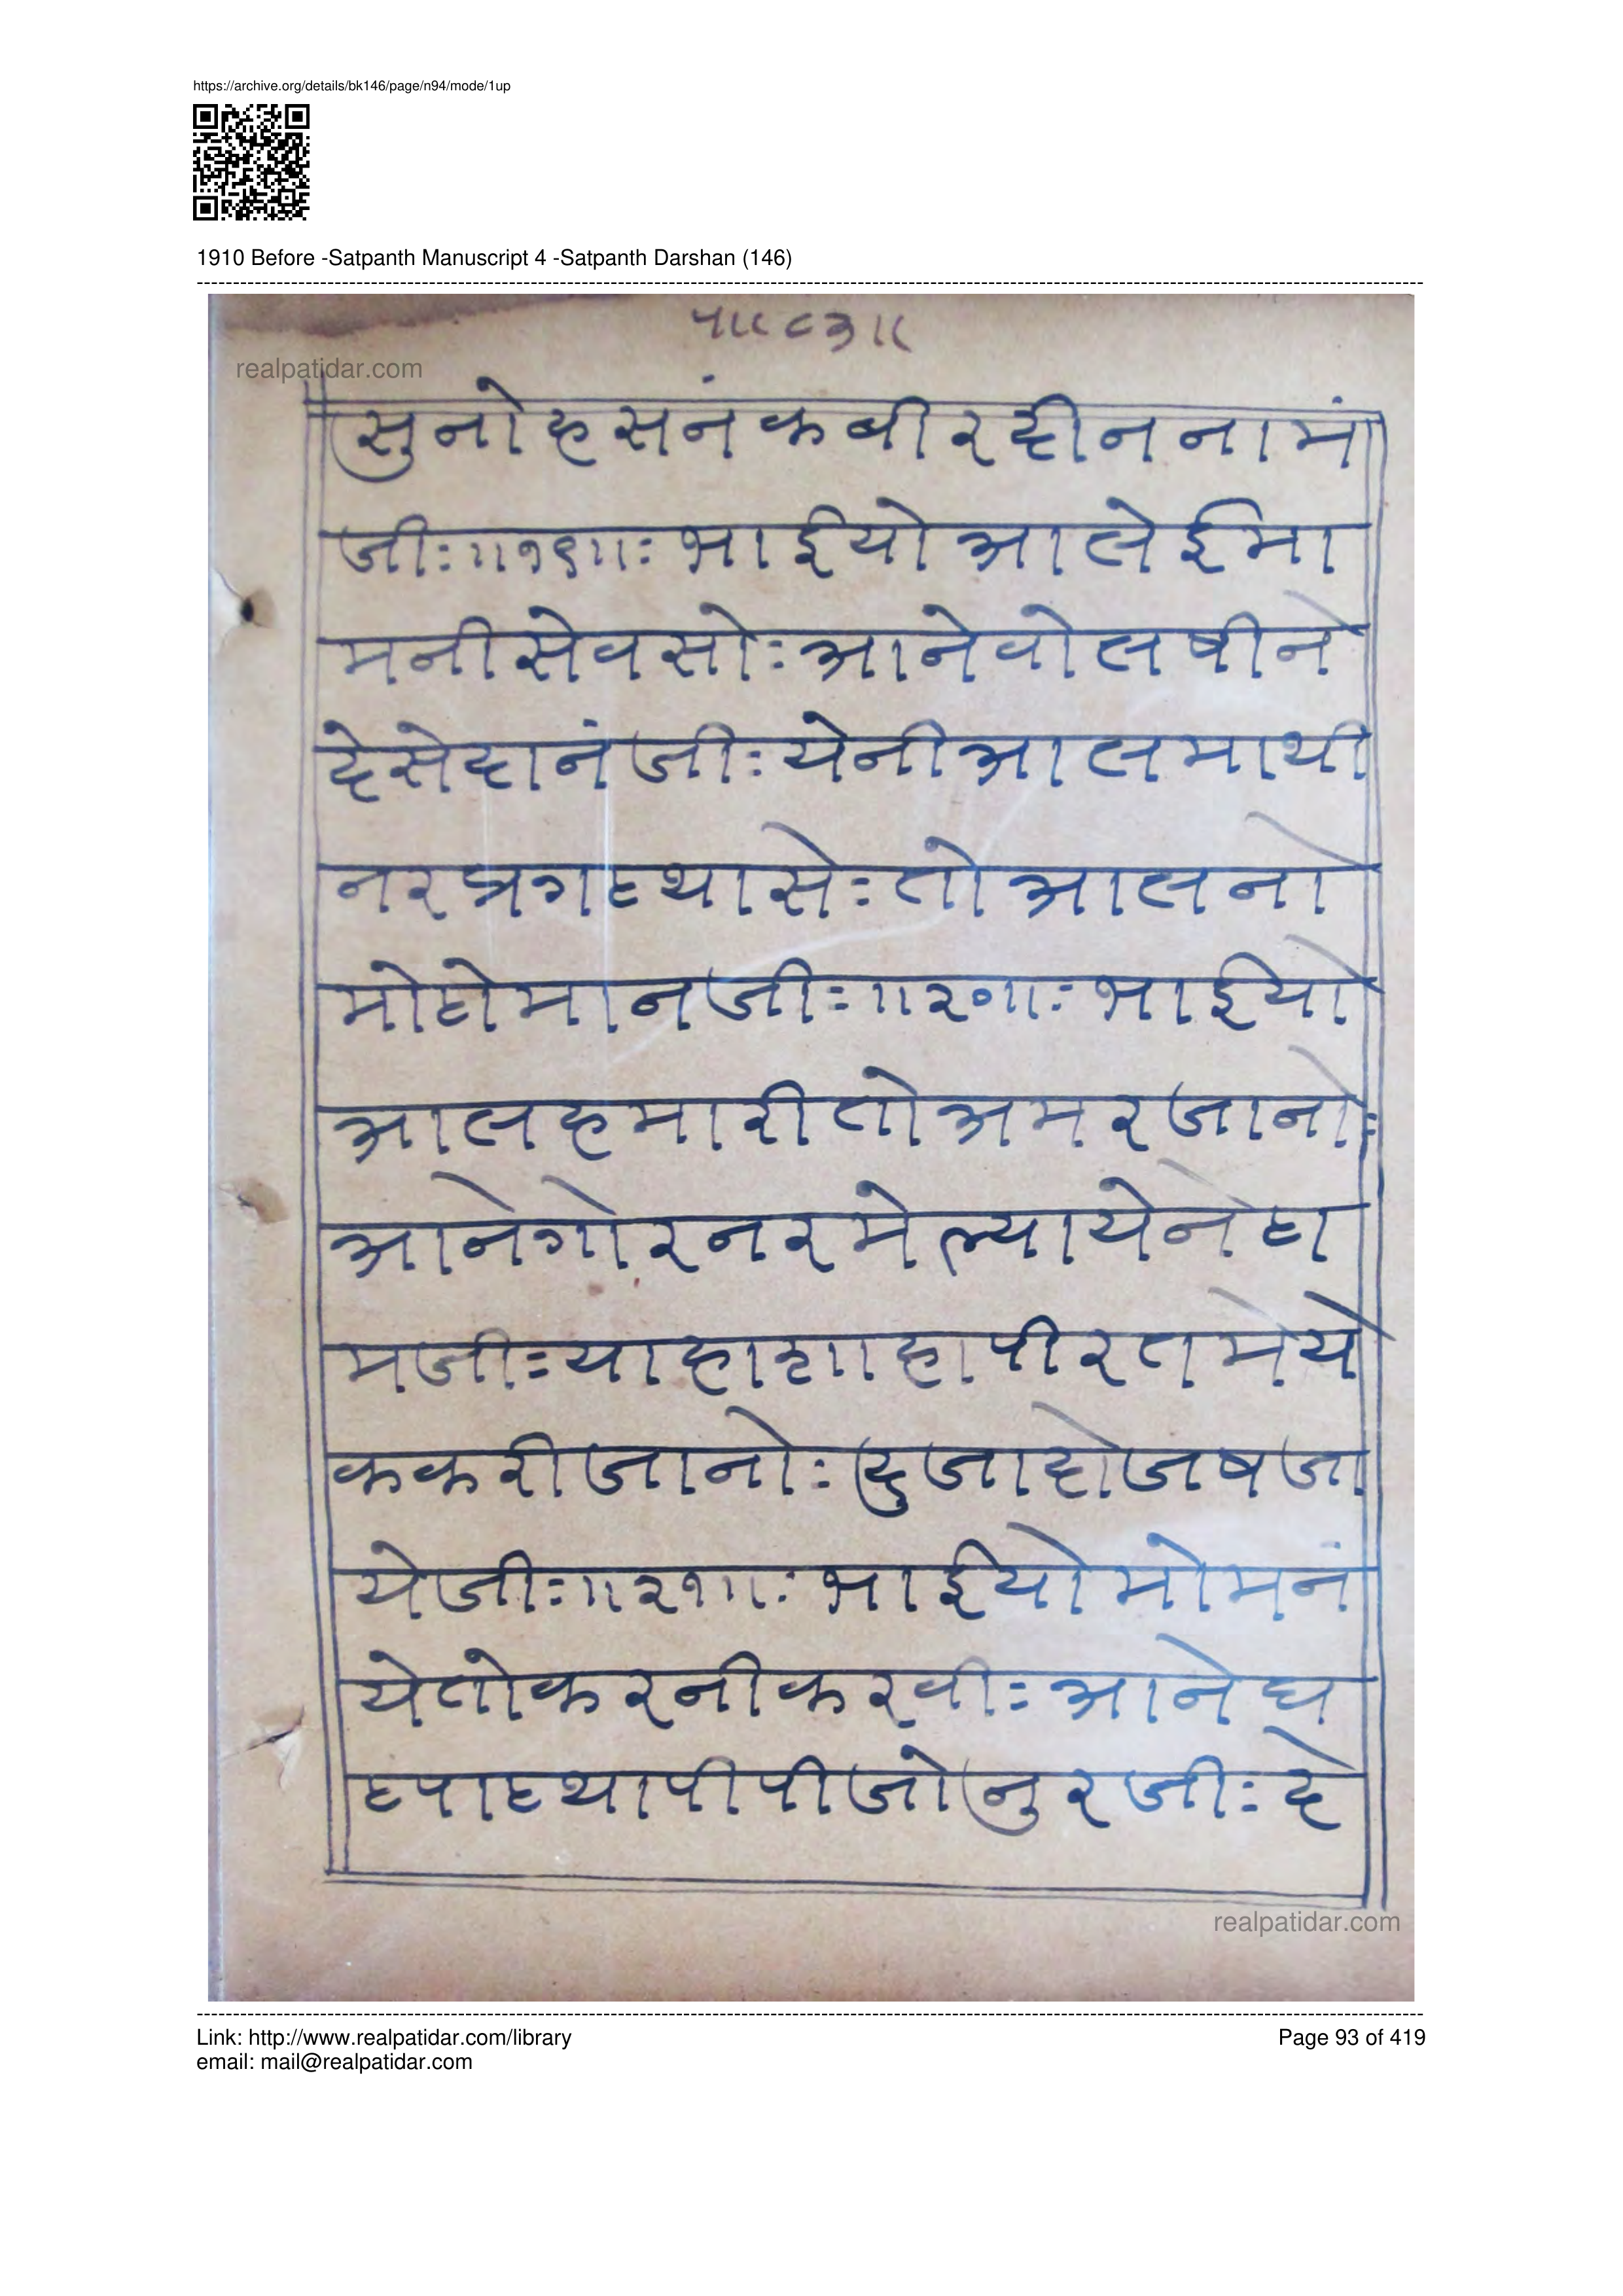 https://archive.org/details/bk146/page/n94/mode/1up
1910 Before -Satpanth Manuscript 4 -Satpanth Darshan (146)
५॥८३॥
realpatidar.com
सुनोहसनंकबीरदीननामं
जीः॥१९॥ः भाईयोआलेईमा
मनीसेवसोःआनेवोलषीने
देसेदानंजीःयेनीआलमाथी
नरप्रगटथासेःतोआलनो
मोटोमानजीः॥२०॥ः भाईयो
आलहमारीतोअमरजानोः
आनेगोरनरमेल्यायेनेठा
मजीःयाहाशाहापीरतमेये
ककरीजानोःदुजादोजषजा
येजीः॥२१॥ः भाईयोमोमनं
येतोकरनीकरवीःआनेघ
टपाटथापीपीजोनुरजीःदे
realpatidar.com
Link: http://www.realpatidar.com/library
email: mail@realpatidar.com
Page 93 of 419